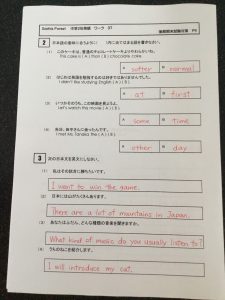 Gentle Forest 中学2年英語 ワーク 07 後期期末試験対策 P8
2 日本語の意味に合うように( )内にあてはまる語を書きなさい。
(1) このケーキは、普通のチョコレートケーキよりやわらかいね。
This cake is ( A ) than ( B ) chocolate cake.
A softer B normal
(2) はじめは英語を勉強するのは好きではありませんでした。
I didn't like studying English ( A ) ( B ).
A at B first
(3) いつかそのうち、この映画を見ようよ。
Let's watch this movie ( A ) ( B ).
A some B time
(4) 先日、田中さんに会ったんです。
I met Ms. Tanaka the ( A ) ( B ).
A other B day
3 次の日本文を英文にしなさい。
(1) 私はその試合に勝ちたいです。
I want to win the game.
(2) 日本には山がたくさんあります。
There are a lot of mountains in Japan.
(3) あなたはふだん、どんな種類の音楽を聞きますか。
What kind of music do you usually listen to?
(4) うちのねこを紹介します。
I will introduce my cat.